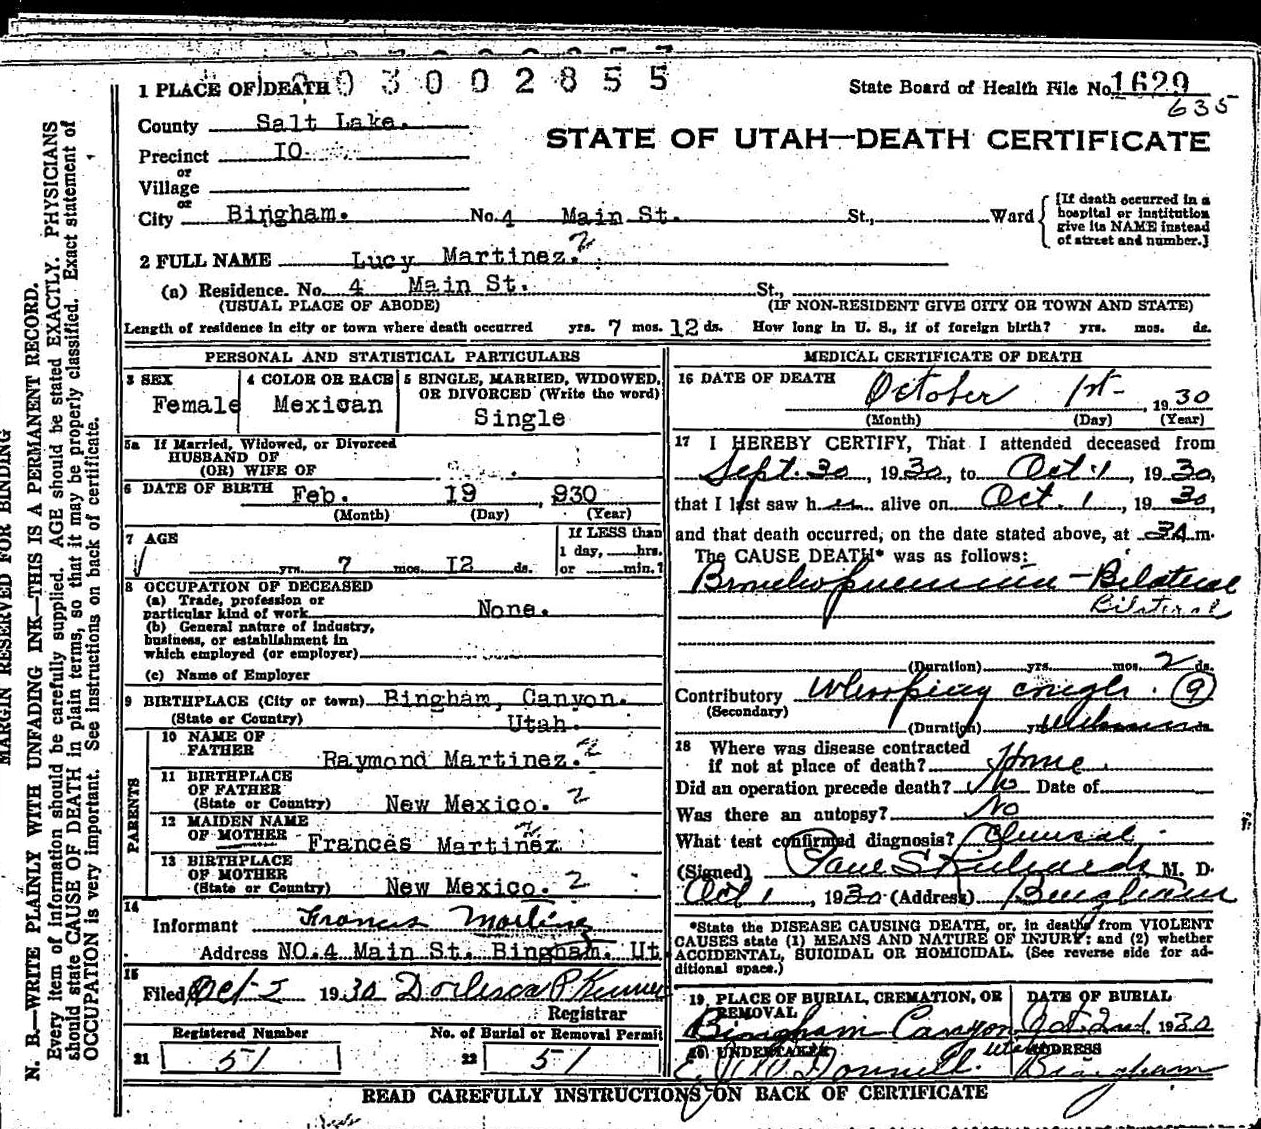 1 PLACE OF DEATH 003002855 State Board of Health File No. 1629
635
County Salt Lake.
STATE OF UTAH—DEATH CERTIFICATE
Precinct 10
or
Village
or
City Bingham. No. 4 Main St. St., Ward
[If death occurred in a
hospital or institution
give its NAME instead
of street and number.]
2 FULL NAME Lucy Martinez. 2
(a) Residence. No. 4 Main St. St.,
(USUAL PLACE OF ABODE) (IF NON-RESIDENT GIVE CITY OR TOWN AND STATE)
Length of residence in city or town where death occurred yrs. 7 mos. 12 ds. How long in U. S., if of foreign birth? yrs. mos. ds.
PERSONAL AND STATISTICAL PARTICULARS
3 SEX
Female
4 COLOR OR RACE
Mexican
5 SINGLE, MARRIED, WIDOWED,
OR DIVORCED (Write the word)
Single
5a If Married, Widowed, or Divorced
HUSBAND OF
(OR) WIFE OF
6 DATE OF BIRTH Feb. 19 , 930
(Month) (Day) (Year)
7 AGE
yrs. 7 mos. 12 ds.
If LESS than
1 day, hrs.
or min.?
8 OCCUPATION OF DECEASED
(a) Trade, profession or
particular kind of work None.
(b) General nature of industry,
business, or establishment in
which employed (or employer)
(c) Name of Employer
9 BIRTHPLACE (City or town) Bingham, Canyon.
(State or Country) Utah.
PARENTS
10 NAME OF
FATHER Raymond Martinez. 2
11 BIRTHPLACE
OF FATHER
(State or Country) New Mexico. 2
12 MAIDEN NAME
OF MOTHER Frances Martinez
13 BIRTHPLACE
OF MOTHER
(State or Country) New Mexico. 2
14
Informant Francis Martinez
Address NO. 4 Main St. Bingham. Ut
15
Filed Oct 2 1930
Registrar
Registered Number No. of Burial or Removal Permit
21 51 22 51
MEDICAL CERTIFICATE OF DEATH
16 DATE OF DEATH
October 1st , 1930
(Month) (Day) (Year)
17 I HEREBY CERTIFY, That I attended deceased from
Sept. 30, 1930, to Oct. 1, 1930,
that I last saw her alive on Oct. 1, 1930,
and that death occurred, on the date stated above, at 3A m.
The CAUSE DEATH* was as follows:
Bronchopneumonia - Bilateral
Bilateral
(Duration) yrs. mos. 2 ds.
Contributory Whooping cough. 9
(Secondary)
(Duration) yrs. ds.
18 Where was disease contracted
if not at place of death? Home
Did an operation precede death? No Date of
Was there an autopsy? No
What test confirmed diagnosis? Clinical
(Signed) Paul S Richards, M. D.
Oct 1, 1930 (Address) Bingham
*State the DISEASE CAUSING DEATH, or, in deaths from VIOLENT
CAUSES state (1) MEANS AND NATURE OF INJURY; and (2) whether
ACCIDENTAL, SUICIDAL OR HOMICIDAL. (See reverse side for ad-
ditional space.)
19 PLACE OF BURIAL, CREMATION, OR
REMOVAL
Bingham Canyon Utah
DATE OF BURIAL
Oct. 2nd, 1930
20 UNDERTAKER
O'Donnell
ADDRESS
Bingham
READ CAREFULLY INSTRUCTIONS ON BACK OF CERTIFICATE
MARGIN RESERVED FOR BINDING
N. B.—WRITE PLAINLY WITH UNFADING INK—THIS IS A PERMANENT RECORD.
Every item of information should be carefully supplied. AGE should be stated EXACTLY. PHYSICIANS
should state CAUSE OF DEATH in plain terms, so that it may be properly classified. Exact statement of
OCCUPATION is very important. See instructions on back of certificate.